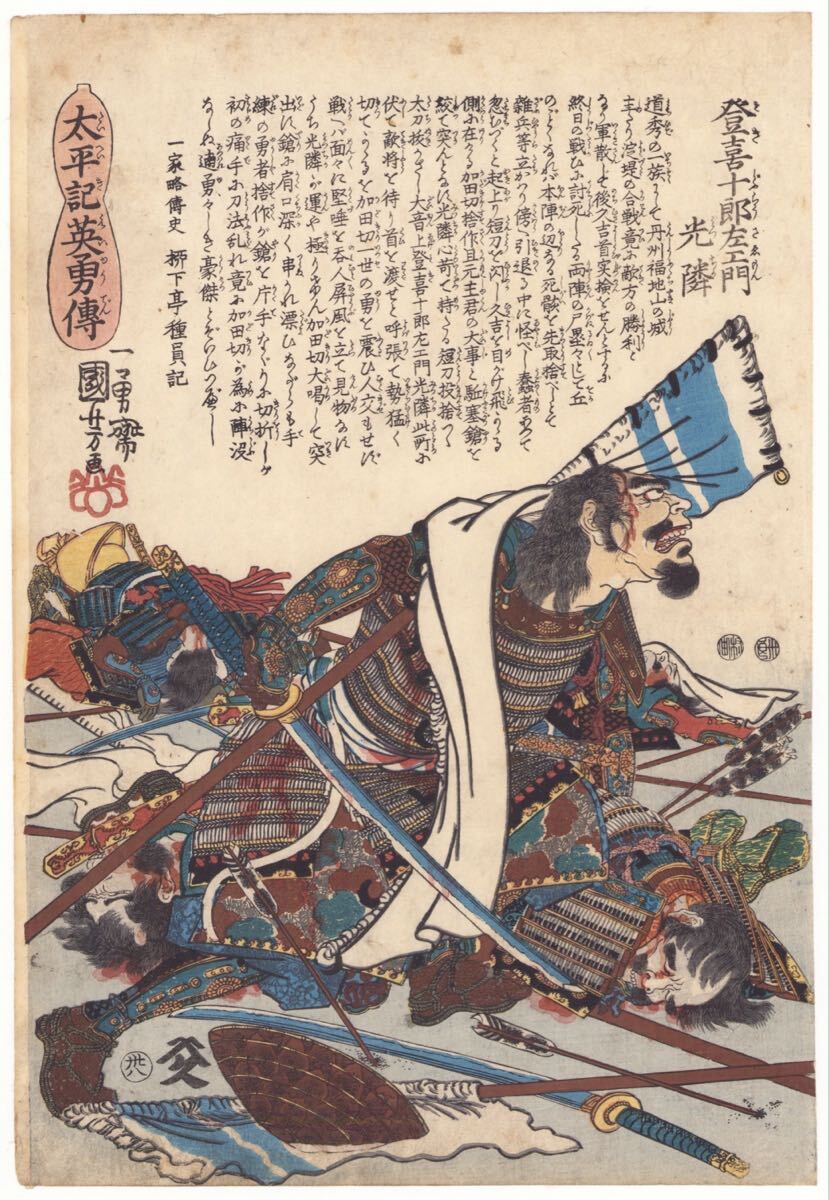 登喜十郎左エ門
光隣
道秀の一族にして丹州福地山の城
主たり淀堤の合戦竟に敵方の勝利と
なり軍散じて後久吉首実檢をせんとするに
終日の戦ひに討死したる両陣の尸累々として丘
のごとくなれバ本陣の辺なる死骸を先取捨べしとて
雑兵等立かゝり傍へ引退る中に怪べし蠢者あつて
忽むつくと起上り短刀を閃し久吉を目がけ飛かゝる
側に在合加田切捨作且元主君の大事と駈塞鎗を
絞て突んとなすに光隣心苛て持たる短刀投捨つゝ
太刀抜かざし大音上登喜十郎左エ門光隣此所に
伏て敵将を待り首を渡せと呼張て勢猛く
切てかゝるを加田切一世の勇を震ひ人交もせず
戦へバ面々に堅唾を呑人屏風を立て見物なす
うち光隣が運や極りけん加田切大喝して突
出す鎗に肩口深く串かれ漂ひながらも手
練の勇者捨作が鎗を片手なぐりに切折しが
初の痛手に刀法乱れ竟に加田切が為に陣没
なしぬ遖勇々しき豪傑とぞいひつべし
一家略傳史　柳下亭種員記
太平記英勇傳
一勇齋
國芳画
卅八